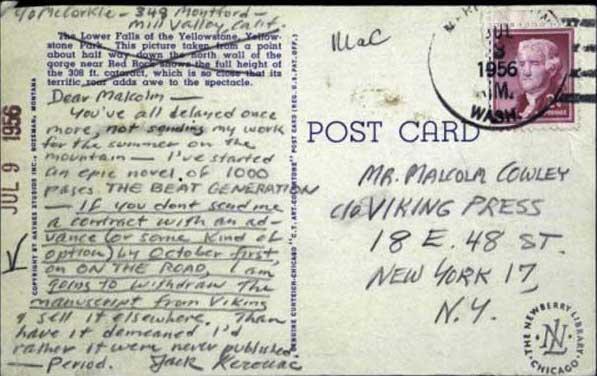 c/o McCorkle - 348 Montford -
Mill Valley, Calif.
The Lower Falls of the Yellowstone, Yellow-
stone Park. This picture taken from a point
about half way down the north wall of the
gorge near Red Rock shows the full height of
the 308 ft. cataract, which is so close that its
terrific roar adds awe to the spectacle.
Dear Malcolm —
You've all delayed once
more, not sending my work
for the summer on the
mountain — I've started
an epic novel of 1000
pages. THE BEAT GENERATION
— If you dont send me
a contract with an ad-
vance (or some kind of
option) by October first,
on ON THE ROAD, I am
going to withdraw the
manuscript from Viking
& sell it elsewhere. Than
have it demeaned I'd
rather it were never published
— Period. Jack Kerouac
JUL 9 1956
COPYRIGHT BY HAYNES STUDIOS INC., BOZEMAN, MONTANA
GENUINE CURTEICH-CHICAGO "C.T. ART-COLORTONE" POST CARD (REG. U.S. PAT. OFF.)
MaC
POST CARD
JUL
1956
M.
WASH.
MR. MALCOLM COWLEY
c/o VIKING PRESS
18 E. 48 ST.
NEW YORK 17,
N.Y.
THE NEWBERRY LIBRARY
CHICAGO